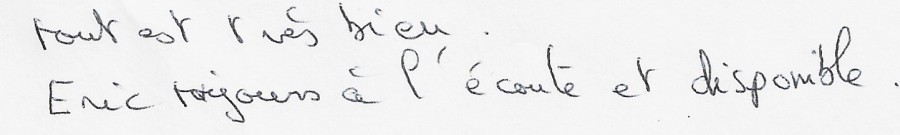 tout est très bien.
Eric toujours à l'écoute et disponible.